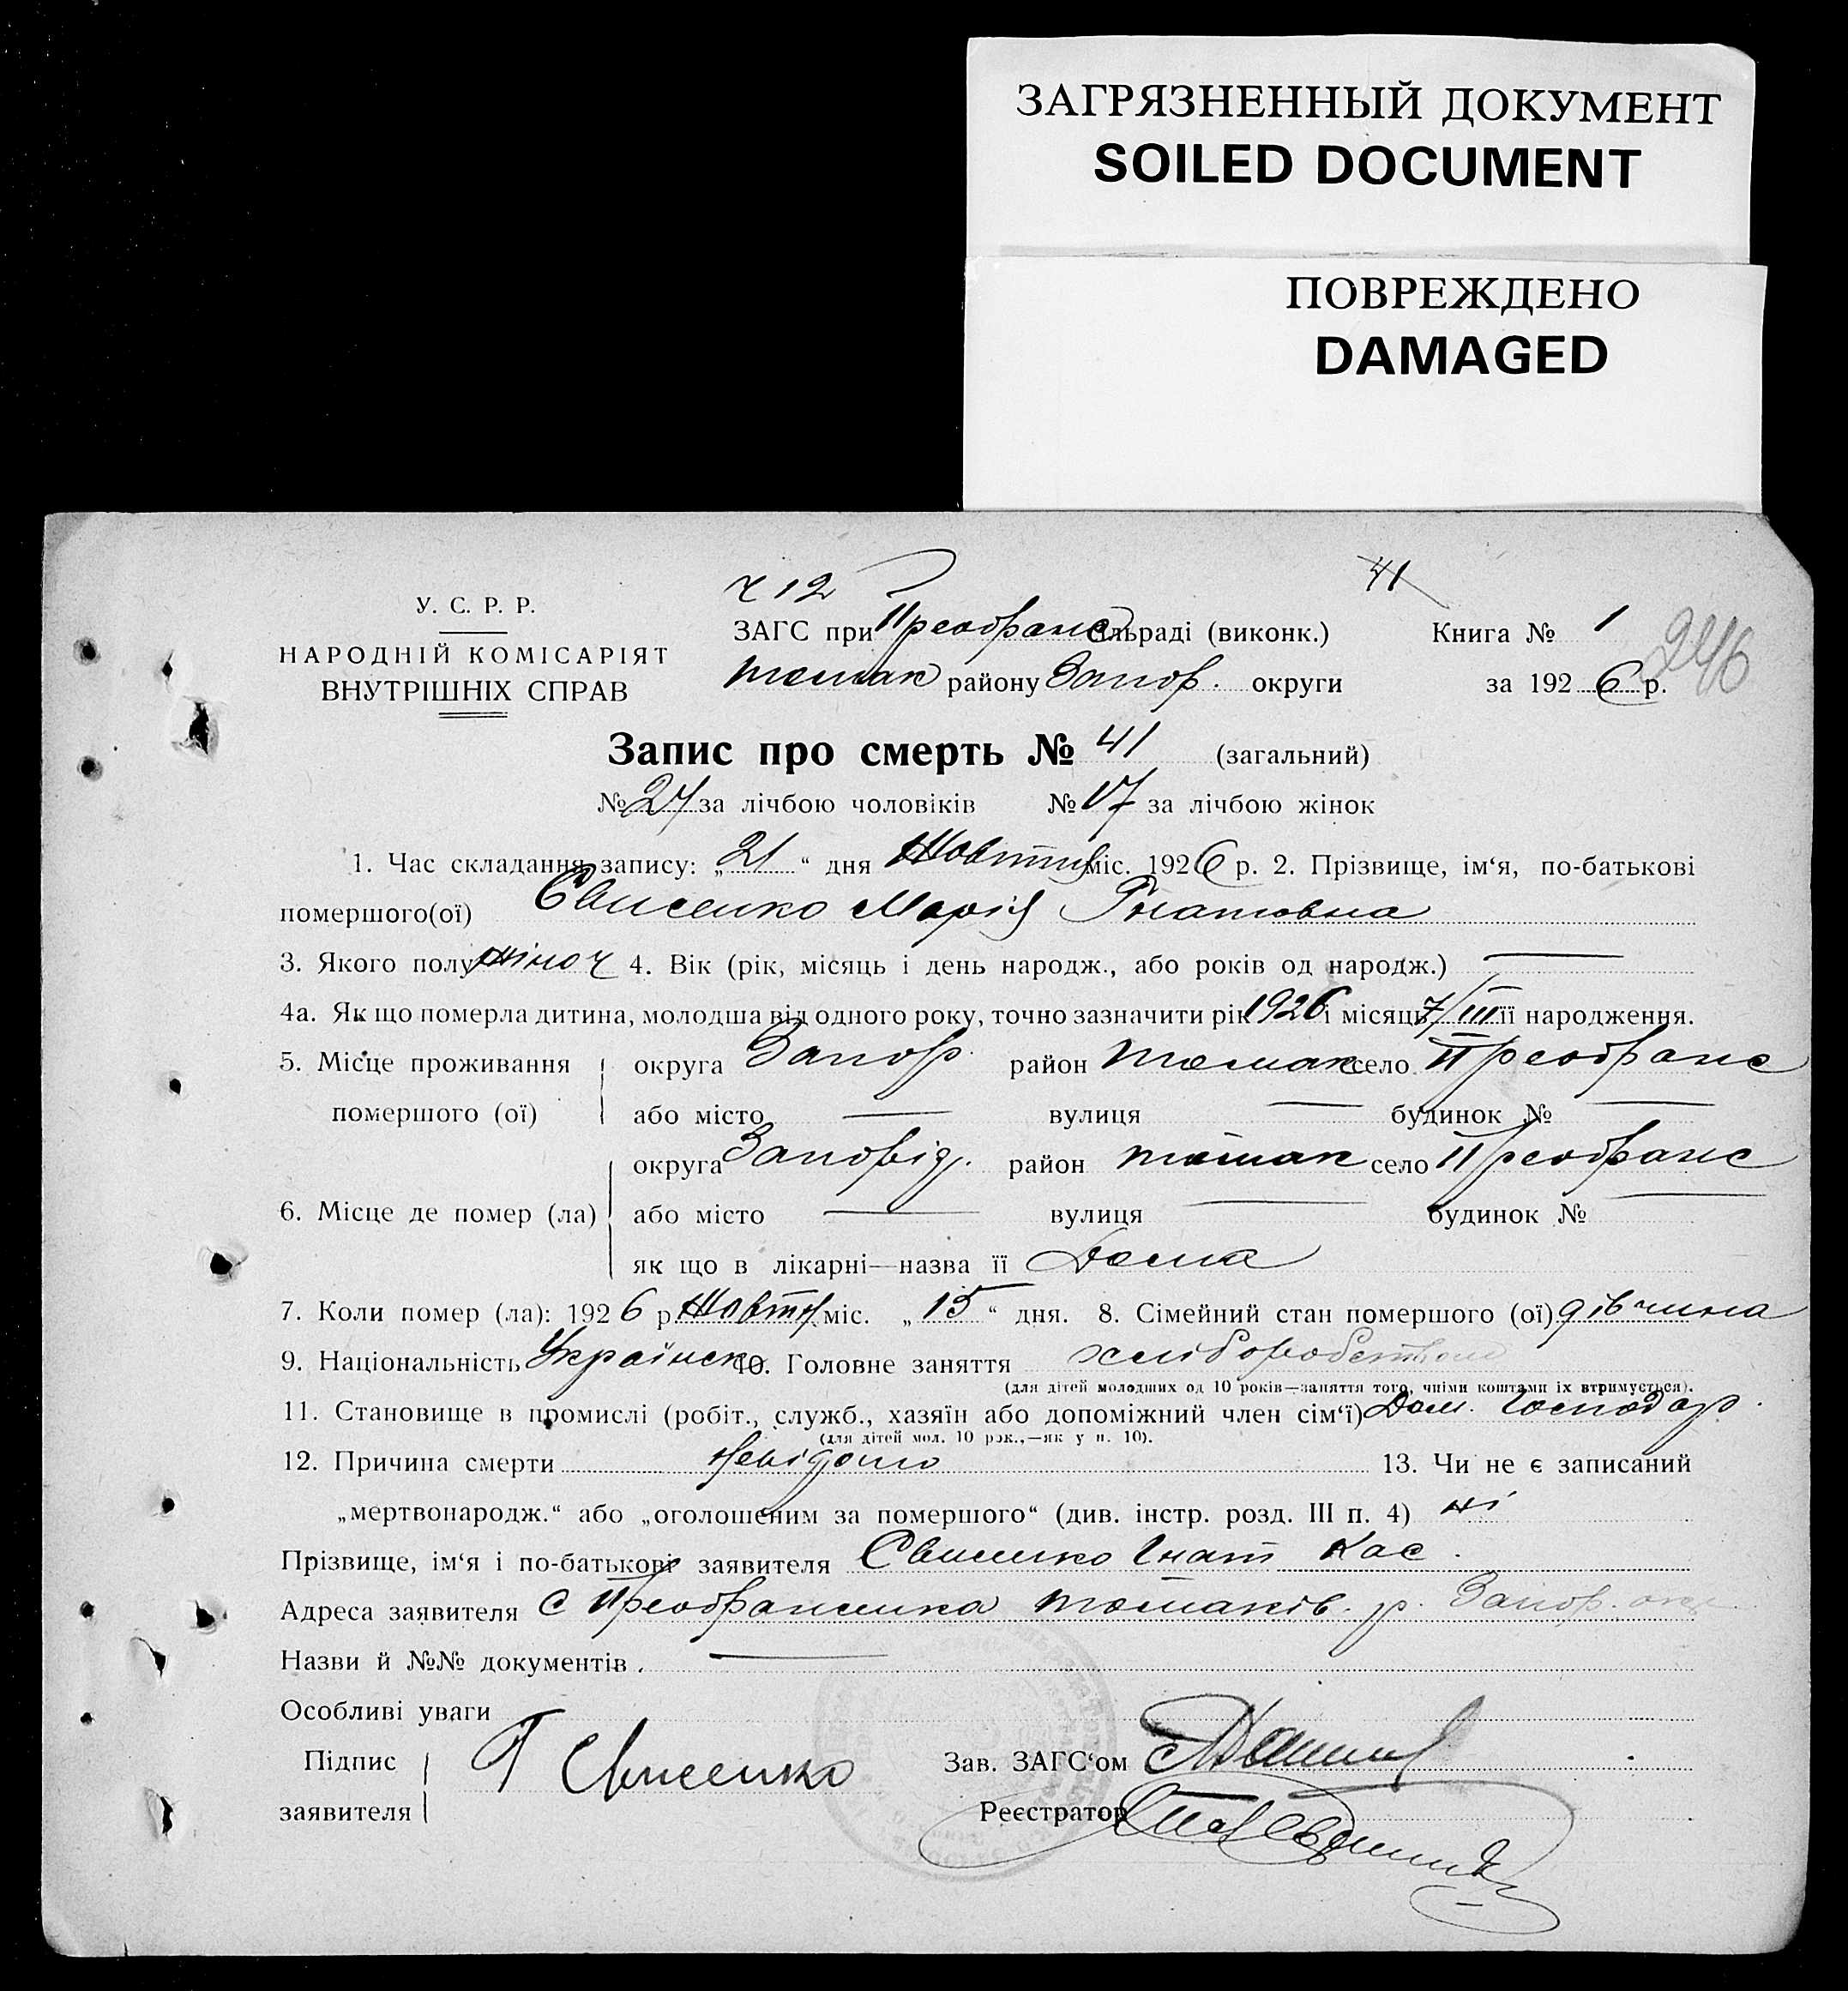 ЗАГРЯЗНЕННЫЙ ДОКУМЕНТ
SOILED DOCUMENT
ПОВРЕЖДЕНО
DAMAGED
ч 12
41
У. С. Р. Р.
НАРОДНІЙ КОМІСАРІЯТ
ВНУТРІШНІХ СПРАВ
ЗАГС при Преображ сільраді (виконк.) Книга № 1
246
томак району Запор. округи за 1926 р.
Запис про смерть № 41 (загальний)
№ 24 за лічбою чоловіків № 17 за лічбою жінок
1. Час складання запису: „21“ дня Жовтня міс. 1926 р. 2. Прізвище, ім‘я, по-батькові
помершого(ої) Євисенко Марія Гнатовна
3. Якого полу жіноч 4. Вік (рік, місяць і день народж., або років од народж.) —
4а. Як що померла дитина, молодша від одного року, точно зазначити рік 1926 і місяць 7/III її народження.
5. Місце проживання округа Запор. район томак село Преображ
помершого (ої) або місто — вулиця — будинок № —
округа Запоріж. район томак село Преображ
6. Місце де помер (ла) або місто — вулиця — будинок № —
як що в лікарні—назва її Дома
7. Коли помер (ла): 1926 р. Жовтн міс. „15“ дня. 8. Сімейний стан помершого (ої) дівчина
9. Національність Українск 10. Головне заняття хліборобством
(для дітей молодших од 10 років—заняття того, чиїми коштами їх втримується).
11. Становище в промислі (робіт., служб., хазяїн або допоміжний член сім‘ї) Дом. Господар.
(для дітей мол. 10 рок.,—як у п. 10).
12. Причина смерти Невідомо 13. Чи не є записаний
„мертвонародж.“ або „оголошеним за помершого“ (див. інстр. розд. III п. 4) ні
Прізвище, ім‘я і по-батькові заявителя Євисенко Гнат Кас.
Адреса заявителя с Преображенка томаків. р. Запор. окр
Назви й №№ документів. —
Особливі уваги
Підпис
заявителя Г Євисенко
Зав. ЗАГС‘ом
Реєстратор